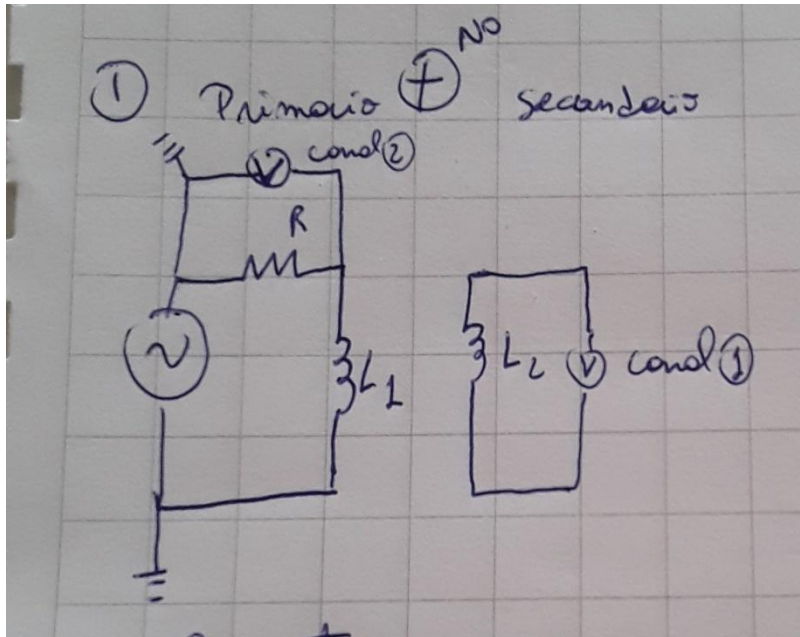 NO
① Primario ⊕ secundario
V canal ②
R
~
L1
L2 V canal ①